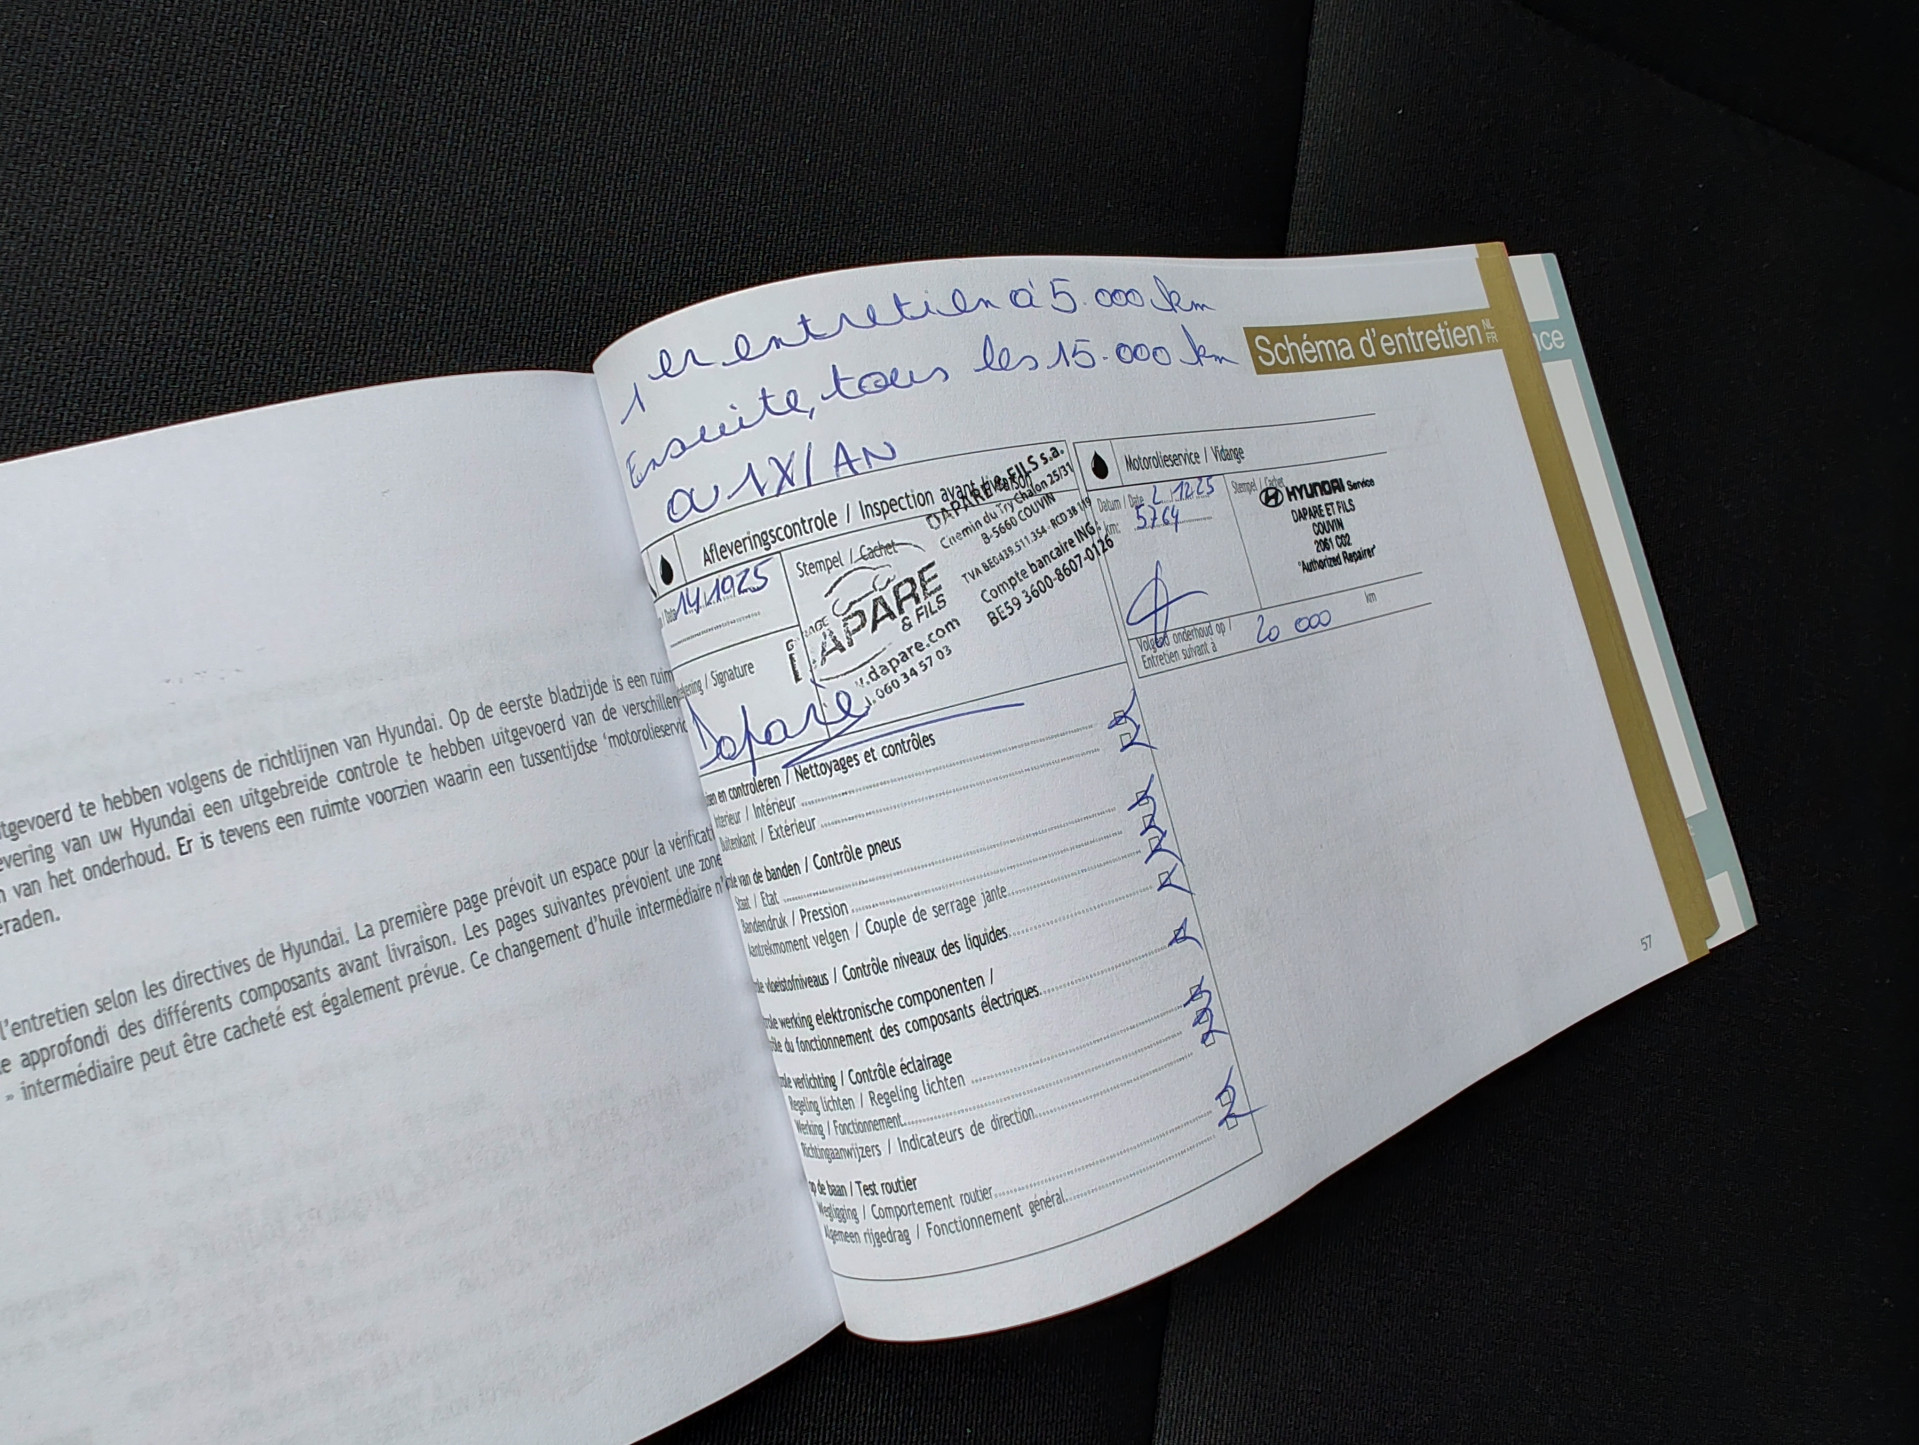 itgevoerd te hebben volgens de richtlijnen van Hyundai. Op de eerste bladzijde is een ruim
evering van uw Hyundai een uitgebreide controle te hebben uitgevoerd van de verschillen
n van het onderhoud. Er is tevens een ruimte voorzien waarin een tussentijdse 'motorolieservic
eraden.
l'entretien selon les directives de Hyundai. La première page prévoit un espace pour la vérificati
e approfondi des différents composants avant livraison. Les pages suivantes prévoient une zone
» intermédiaire peut être cacheté est également prévue. Ce changement d'huile intermédiaire n'
1er entretien à 5.000 km
Ensuite, tous les 15.000 km
ou 1X/AN
Schéma d'entretien NL FR
nce
Afleveringscontrole / Inspection avant livraison
/ Date 14 10 25
Stempel / Cachet
GARAGE
DAPARE
& FILS
.dapare.com
060 34 57 03
DAPARE & FILS s.a.
Chemin du Try Chalon 25/31
B-5660 COUVIN
TVA BE0439.511.354 - RCD 38 149
Compte bancaire ING :
BE59 3600-8607-0126
kening / Signature
Dapare
en controleren / Nettoyages et contrôles
Interieur / Intérieur
Buitenkant / Extérieur
ole van de banden / Contrôle pneus
Staat / Etat
Bandendruk / Pression
Aantrekmoment velgen / Couple de serrage jante
ole vloeistofniveaus / Contrôle niveaux des liquides
ole werking elektronische componenten /
ôle du fonctionnement des composants électriques
ole verlichting / Contrôle éclairage
Regeling lichten / Regeling lichten
Werking / Fonctionnement
Richtingaanwijzers / Indicateurs de direction
op de baan / Test routier
Wegligging / Comportement routier
Algemeen rijgedrag / Fonctionnement général
Motorolieservice / Vidange
Datum / Date 2 12 25
km: 5764
Stempel / Cachet
HYUNDAI Service
DAPARE ET FILS
COUVIN
2061 C02
"Authorized Repairer"
Volgend onderhoud op /
Entretien suivant à
20 000 km
57